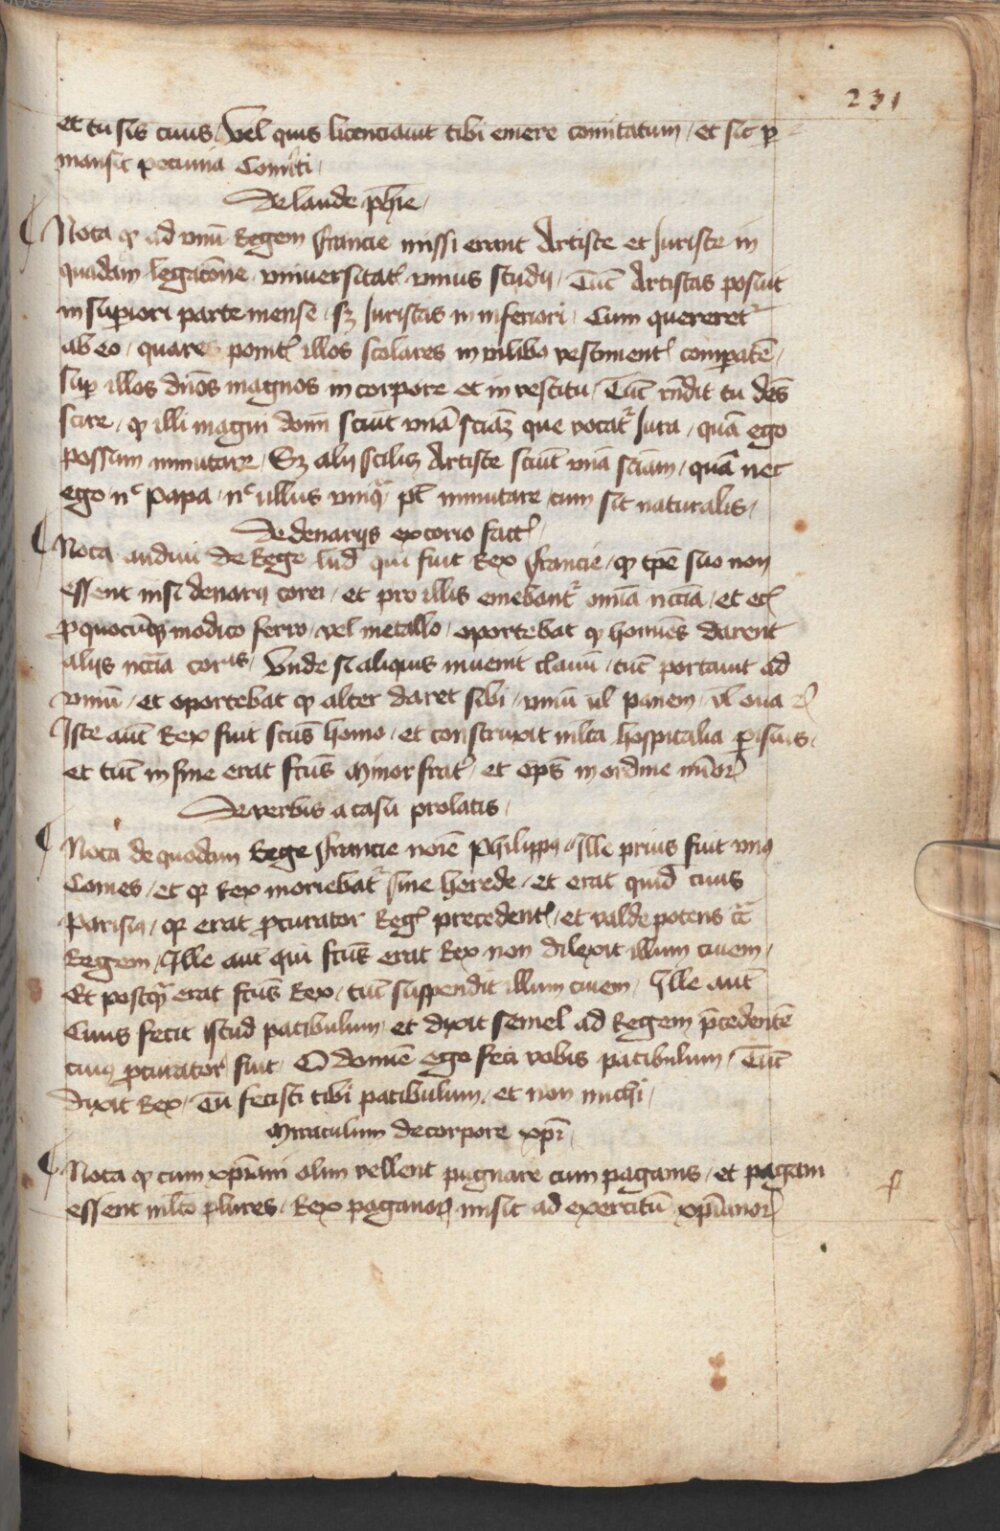 231
et tu sis ciuis / Vel quis licenciauit tibi emere comitatum / et sic p̱
mansit pecunia Comiti /
De laude ph̄ie /
Nota ꝙ ad vnū Regem francie missi erant Artiste et Juriste in
quadam legacōne vniuersitat᷒ vnius studij / Tūc Artistas posuit
in sup̱iori parte mense / sꝫ Juristas in inferiori / Cum quereret᷑
ab eo / quare ponit᷒ illos scolares in vilibꝯ vestiment᷒
sup̱ illos dn̄os magnos in corpore et in vestitu / Tūc rn̄dit tu deƀs
scire / ꝙ illi magni domī sciūt vnā sciāꝫ que vocat᷑ Jura / quā ego
possum inmutare / Sꝫ alij scilicꝫ Artiste sciūt vnā sciam / quā nec
ego nᶜ Papa / nᶜ ullus vmqᵃ̄ pt᷒ inmutare cum sit naturalis /
De denarijs ex corio fact᷒
Nota audiui de Rege lud᷒ qui fuit Rex francie / ꝙ tp̄e suo non
essent nisi denarij corei / et pro illis emebant᷑ om̄ia nccīa / et ec᷒
ꝓ quocūqꝫ modico ferro / vel metallo / oportebat ꝙ homīes darent
alijs nccīa / Vnde si aliquis inuenit clauū / tūc portauit ad
vinū / et oportebat ꝙ alter daret sibi / vinū ul᷒ panem / ul᷒ oua
Iste aūt Rex fuit scūs homo / et construxit ml̄ta hospitalia p̱ suis /
et tūc in fine erat fcūs Minor frat᷑ / et ep̄s in ordine mīorꝝ
De verbis a casu prolatis /
Nota de quodam Rege francie noīe Philippꝯ / Ille prius fuit vnꝯ
Comes / et qꝛ Rex moriebat᷑ sine herede / et erat quid᷒ ciuis
Parisiꝯ / qꝛ erat ꝓcurator Reg᷒ precedent᷒ / et valde potens
Regem / Ille aūt qui fcūs erat Rex non dilexit illum ciuem /
Et postqᵃ̄ erat fcūs Rex / tūc suspendit illum ciuem / Ille aūt
Ciuis fecit istud patibulum et dixit semel ad Regem p̄cedentē
cuiꝯ ꝓcurator fuit / O domīe ego feci vobis patibulum / Tūc
dixit Rex / Tu fecisti tibi patibulum / et non michi /
Miraculum de corpore xp̄i
Nota ꝙ cum xp̄iani olim vellent pugnare cum paganis / et pagani
essent ml̄to plures / Rex paganorꝝ misit ad exercitū xp̄ianorꝝ